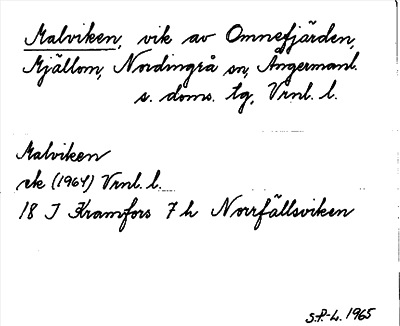 Malviken, vik av Omnefjärden,
Mjällom, Nordingrå sn, Ångermanl.
s. doms. tg, Vrnl. l.
Malviken
ek (1964) Vrnl. l.
18 J Kramfors 7 h Norrfällsviken
S.P.-L. 1965